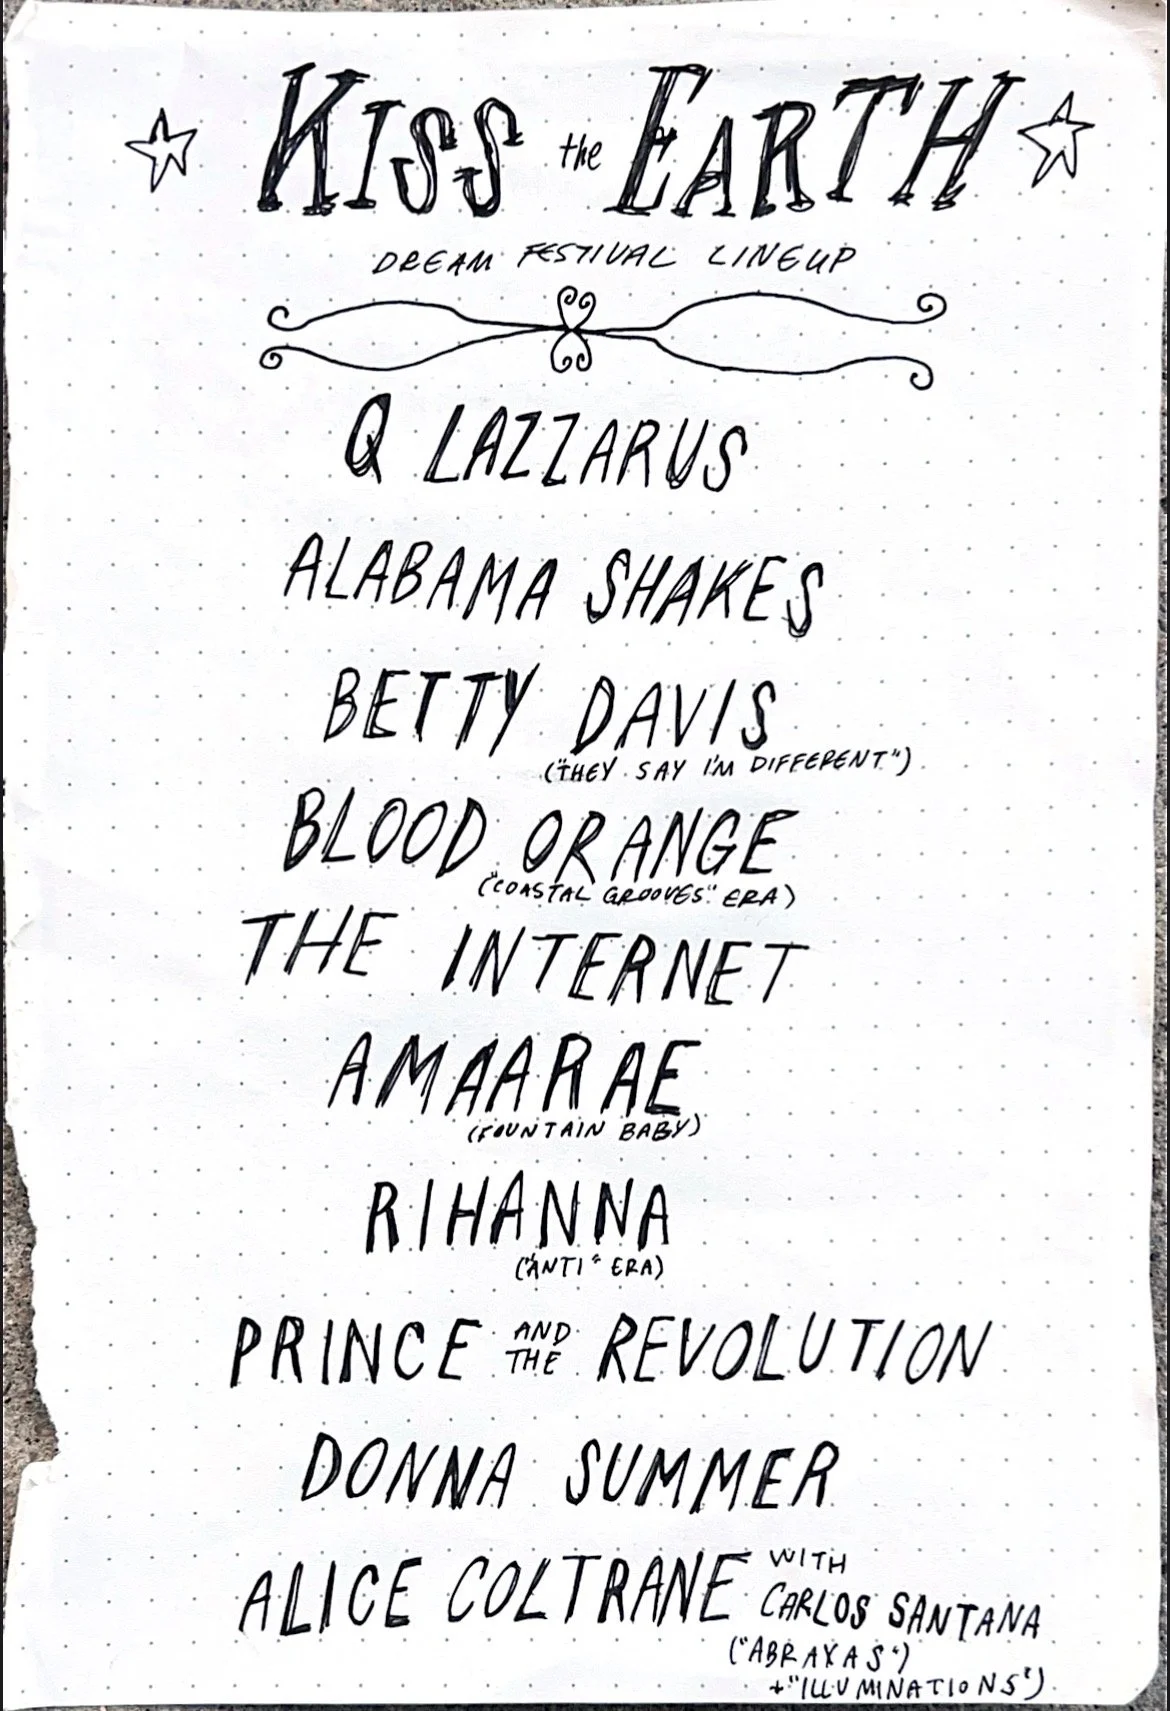 KISS the EARTH
DREAM FESTIVAL LINEUP
Q LAZZARUS
ALABAMA SHAKES
BETTY DAVIS
("THEY SAY I'M DIFFERENT")
BLOOD ORANGE
("COASTAL GROOVES" ERA)
THE INTERNET
AMAARAE
(FOUNTAIN BABY)
RIHANNA
("ANTI" ERA)
PRINCE AND THE REVOLUTION
DONNA SUMMER
ALICE COLTRANE WITH CARLOS SANTANA
("ABRAXAS")
+"ILLUMINATIONS")